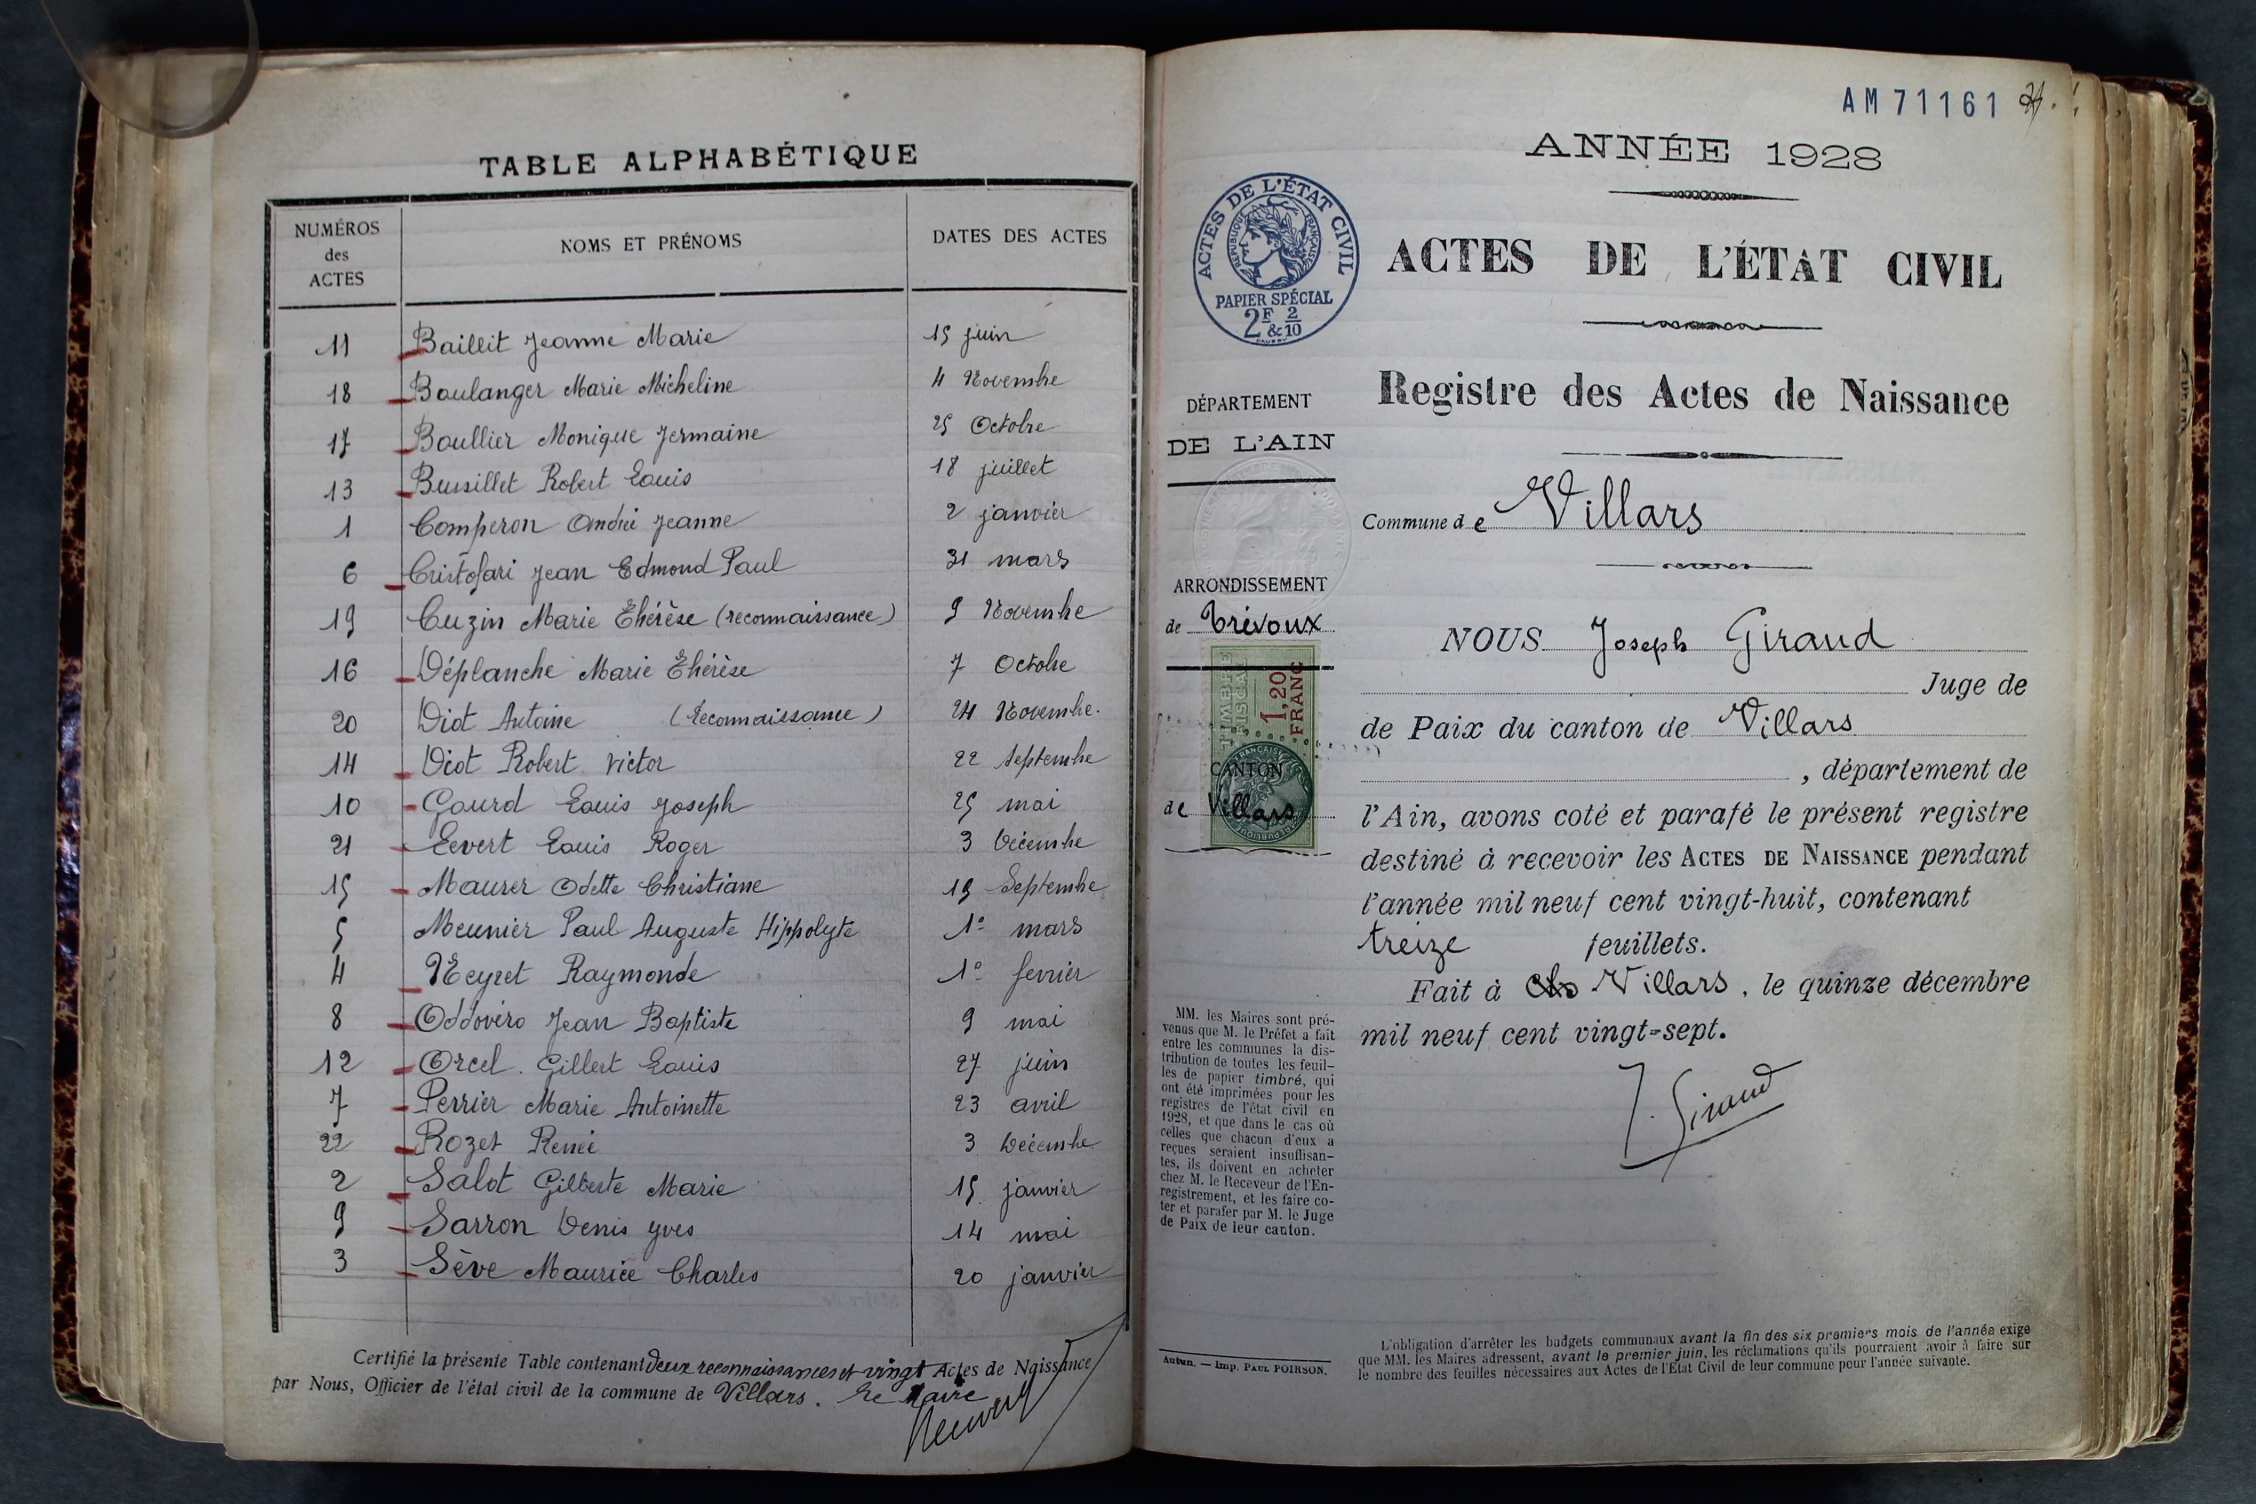 TABLE ALPHABÉTIQUE
NUMÉROS des ACTES NOMS ET PRÉNOMS DATES DES ACTES
11 Baillit Jeanne Marie 15 juin
18 Boulanger Marie Micheline 4 Novembre
17 Boullier Monique Germaine 25 Octobre
13 Bussillet Robert Louis 18 juillet
1 Comperon André Jeanne 2 janvier
6 Cristofari Jean Edmond Paul 31 mars
19 Cuzin Marie Thérèse (reconnaissance) 9 Novembre
16 Déplanche Marie Thérèse 7 Octobre
20 Diot Antoine (Reconnaissance) 24 Novembre.
14 Diot Robert Victor 22 Septembre
10 Gourd Louis Joseph 25 mai
21 Levert Louis Roger 3 Décembre
15 Maurer Odette Christiane 19 Septembre
5 Meunier Paul Auguste Hippolyte 1º mars
4 Neyret Raymonde 1º fevrier
8 Oddovero Jean Baptiste 9 mai
12 Orcel. Gilbert Louis 27 juin
7 Perrier Marie Antoinette 23 avril
22 Rozet Renée 3 Décembre
2 Salot Gilberte Marie 15 janvier
9 Sarron Denis Yves 14 mai
3 Sève Maurice Charles 20 janvier
Certifié la présente Table contenant deux reconnaissances et vingt Actes de Naissance
par Nous, Officier de l'état civil de la commune de Villars. Le Maire
AM71161
ANNÉE 1928
ACTES DE L'ÉTAT CIVIL
RÉPUBLIQUE FRANÇAISE
PAPIER SPÉCIAL
2F & 2/10
ACTES DE L'ÉTAT CIVIL
Registre des Actes de Naissance
DÉPARTEMENT
DE L'AIN
Commune de Villars
ARRONDISSEMENT
de Trévoux
TIMBRE FISCAL
1,20 FRANC
CANTON
de Villars
NOUS Joseph Giraud
Juge de
de Paix du canton de Villars
, département de
l'Ain, avons coté et parafé le présent registre
destiné à recevoir les ACTES DE NAISSANCE pendant
l'année mil neuf cent vingt-huit, contenant
treize feuillets.
Fait à Villars, le quinze décembre
mil neuf cent vingt-sept.
J. Giraud
MM. les Maires sont pré-
venus que M. le Préfet a fait
entre les communes la dis-
tribution de toutes les feuil-
les de papier timbré, qui
ont été imprimées pour les
registres de l'état civil en
1928, et que dans le cas où
celles que chacun d'eux a
reçues seraient insuffisan-
tes, ils doivent en acheter
chez M. le Receveur de l'En-
registrement, et les faire co-
ter et parafer par M. le Juge
de Paix de leur canton.
Autun. — Imp. PAUL POIRSON.
L'obligation d'arrêter les budgets communaux avant la fin des six premiers mois de l'année exige
que MM. les Maires adressent, avant le premier juin, les réclamations qu'ils pourraient avoir à faire sur
le nombre des feuilles nécessaires aux Actes de l'Etat Civil de leur commune pour l'année suivante.